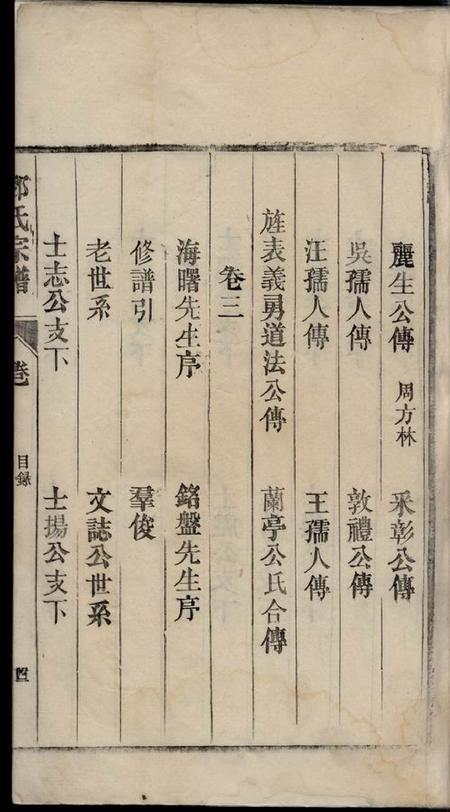 麗生公傳 周方林 采彰公傳
吳孺人傳 敦禮公傳
汪孺人傳 王孺人傳
旌表義勇道法公傳 蘭亭公氏合傳
卷三
海曙先生序 銘盤先生序
修譜引 羣俊
老世系 文誌公世系
士志公支下 士揚公支下
氏宗譜 卷 目錄